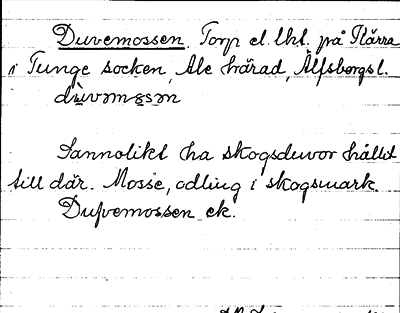 Duvemossen. Torp el. lht. på Kärra
i Tunge socken, Ale härad, Älfsborgs l.
dùvəmɷsən
Sannolikt ha skogsduvor hållit
till där. Mosse, odling i skogsmark.
Dufvemossen ek.